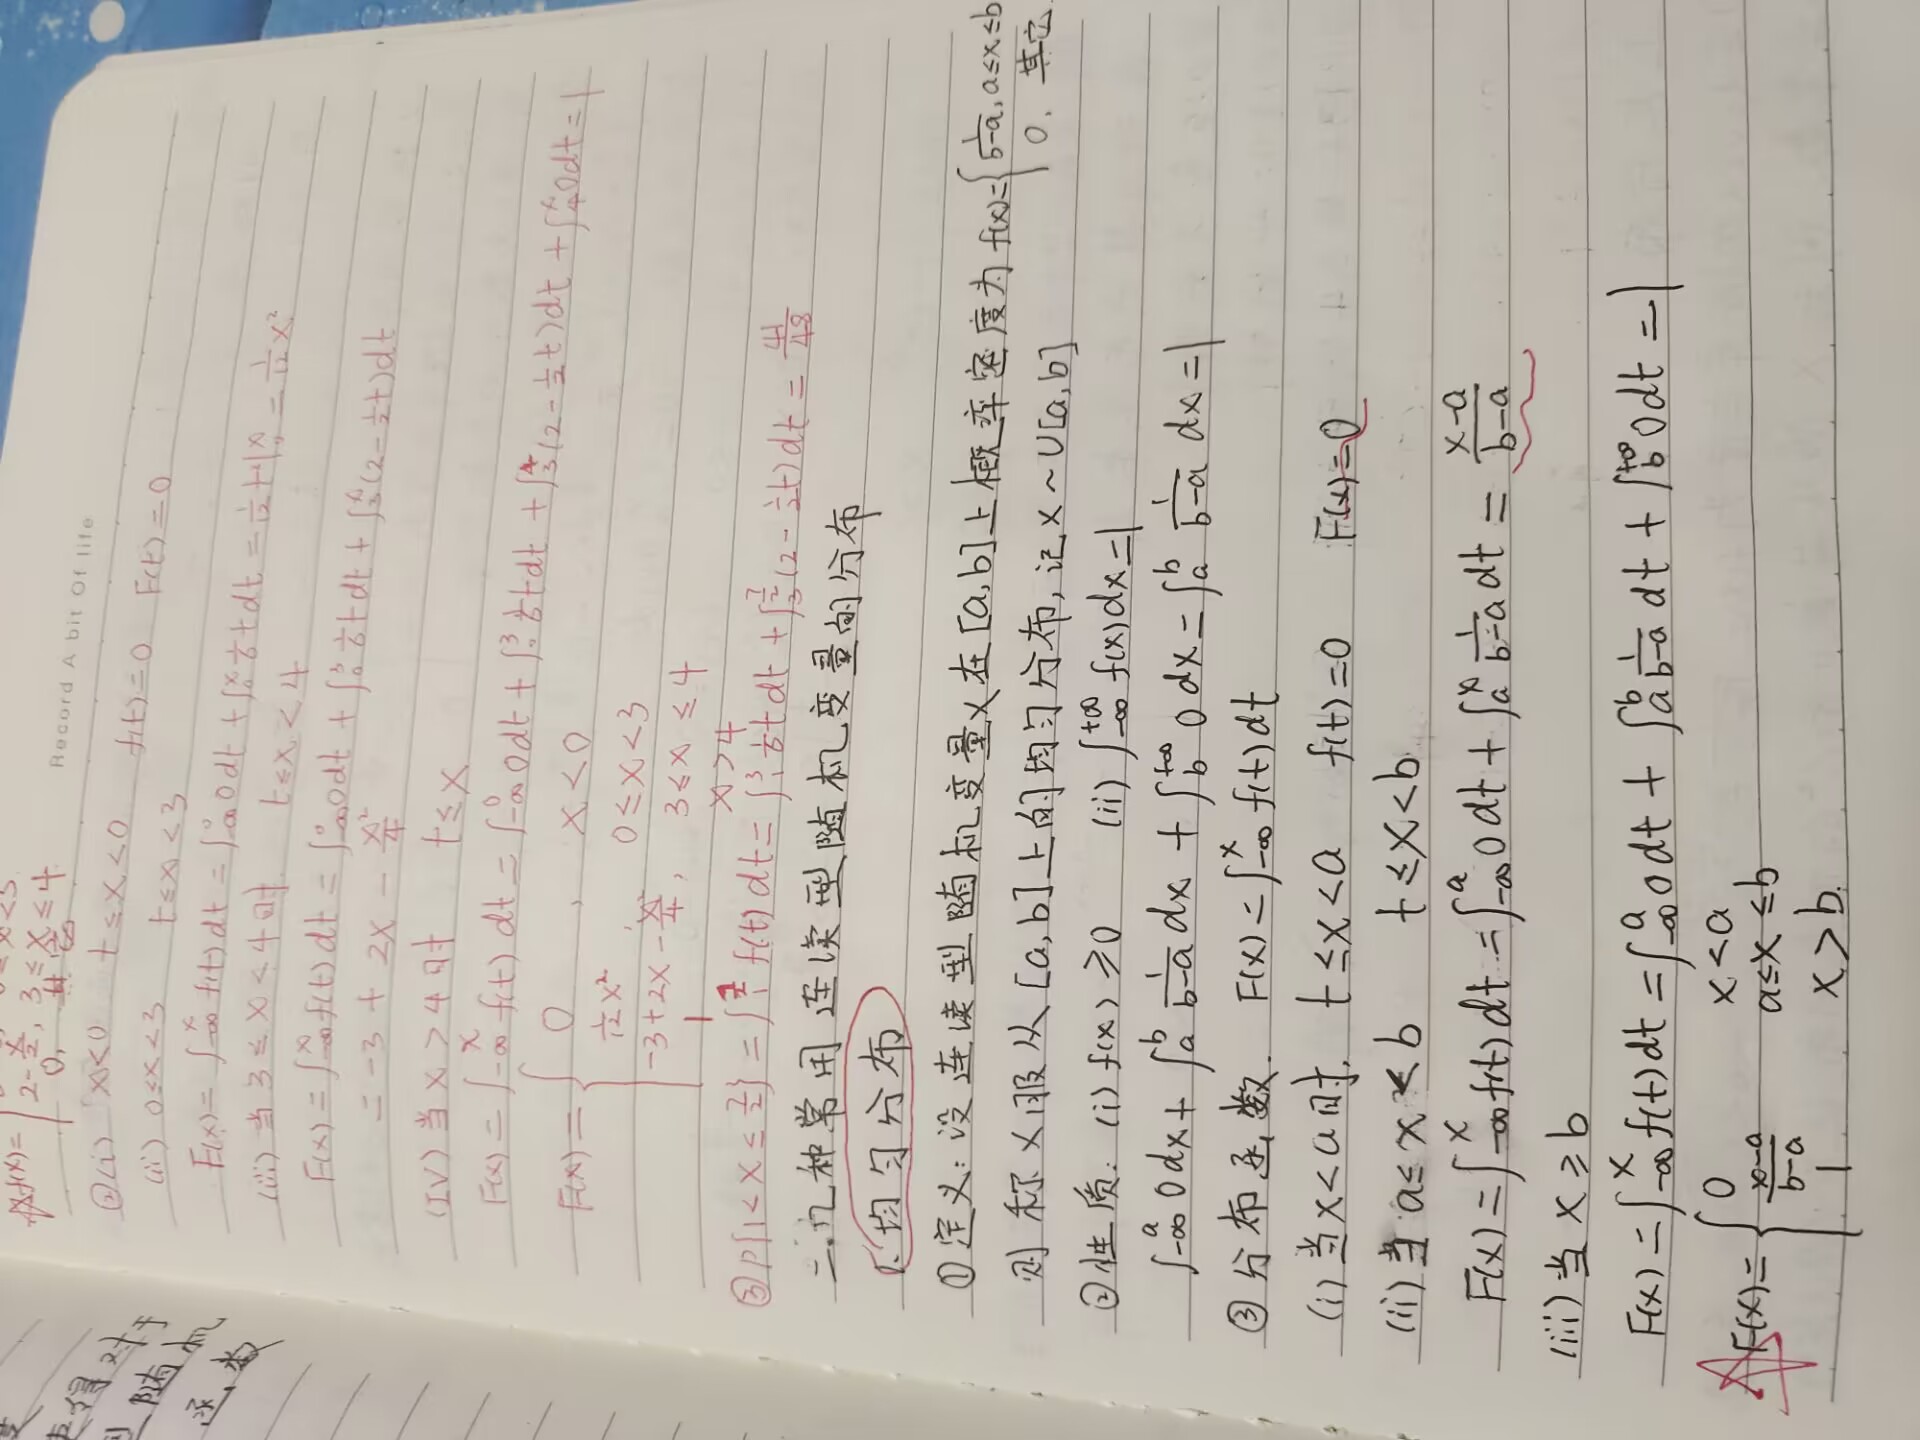 Record A bit Of life
f(x)={
2-x/2, 3≤x≤4
0, 其它
②(i) x<0 t≤x<0 f(t)=0 F(t)=0
(ii) 0≤x<3 t≤x<3
F(x)=∫_{-∞}^{x} f(t)dt=∫_{-∞}^{0} 0dt+∫_{0}^{x} 1/6 tdt=1/12 t²|_{0}^{x}=1/12 x²
(iii) 当3≤x<4时 t≤x<4
F(x)=∫_{-∞}^{x} f(t)dt=∫_{-∞}^{0} 0dt+∫_{0}^{3} 1/6 tdt+∫_{3}^{x}(2-1/2 t)dt
=-3+2x-x²/4
(IV) 当x>4时 t≤x
F(x)=∫_{-∞}^{x} f(t)dt=∫_{-∞}^{0} 0dt+∫_{0}^{3} 1/6 tdt+∫_{3}^{4}(2-1/2 t)dt+∫_{4}^{x} 0dt=1
F(x)={ 0 , x<0
1/12 x² 0≤x<3
-3+2x-x²/4, 3≤x≤4
1 x>4
③P{1<x≤7/2}=∫_{1}^{7/2} f(t)dt=∫_{1}^{3} 1/6 tdt+∫_{3}^{7/2}(2-1/2 t)dt=41/48
二.几种常用连续型随机变量的分布
1.均匀分布
①定义:设连续型随机变量X在[a,b]上概率密度为f(x)={ 1/(b-a), a≤x≤b
0. 其它.
则称X服从[a,b]上的均匀分布,记X~U[a,b]
②性质: (i) f(x)≥0 (ii) ∫_{-∞}^{+∞} f(x)dx=1
∫_{-∞}^{a} 0dx+∫_{a}^{b} 1/(b-a) dx+∫_{b}^{+∞} 0dx=∫_{a}^{b} 1/(b-a) dx=1
③分布函数. F(x)=∫_{-∞}^{x} f(t)dt
(i) 当x<a时, t≤x<a f(t)=0 F(x)=0
(ii) 当a≤x<b t≤x<b
F(x)=∫_{-∞}^{x} f(t)dt=∫_{-∞}^{a} 0dt+∫_{a}^{x} 1/(b-a) dt=(x-a)/(b-a)
(iii) 当x≥b
F(x)=∫_{-∞}^{x} f(t)dt=∫_{-∞}^{a} 0dt+∫_{a}^{b} 1/(b-a) dt+∫_{b}^{+∞} 0dt=1
F(x)={ 0 x<a
(x-a)/(b-a) a≤x≤b
1 x>b.